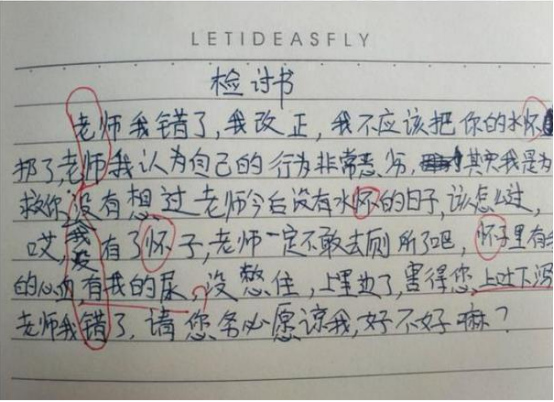 LETIDEASFLY
检讨书
老师我错了,我改正,我不应该把你的水怀
了老师我认为自己的行为非常恶劣,其实我是为
救你,没有想过老师今后没有水怀的日子,该怎么过,
哎,我没有了怀子,老师一定不敢去厕所了吧,怀子里有
的心血,有我的尿,没憋住,上里边了,害得您上吐下泻
老师我错了,请您务必愿谅我,好不好嘛?